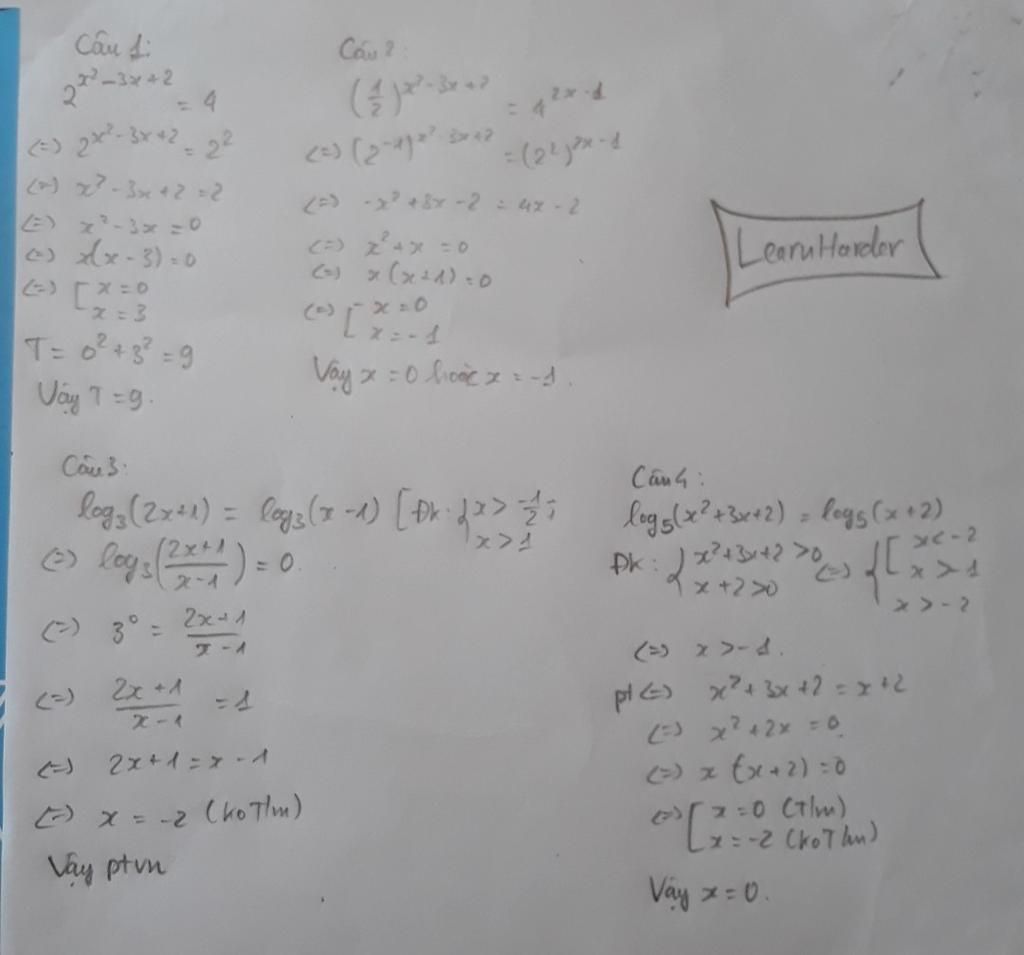 Câu 1:
2^{x²-3x+2} = 4
(=) 2^{x²-3x+2} = 2²
(=) x²-3x+2=2
(=) x²-3x=0
(=) x(x-3)=0
(=) [x=0
x=3
T= 0²+3²=9
Vậy T=9.
Câu 2:
(1/2)^{x²-3x+2} = 4^{2x-1}
(=) (2^{-1})^{x²-3x+2} = (2²)^{2x-1}
(=) -x²+3x-2 = 4x-2
(=) x²+x=0
(=) x(x+1)=0
(=) [x=0
x=-1
Vậy x=0 hoặc x=-1.
LearnHarder
Câu 3:
log₃(2x+1) = log₃(x-1) [Đk: {x>-1/2;
x>1
(=) log₃((2x+1)/(x-1)) = 0
(=) 3⁰ = (2x+1)/(x-1)
(=) (2x+1)/(x-1) = 1
(=) 2x+1=x-1
(=) x=-2 (koT/m)
Vậy ptvn
Câu 4:
log₅(x²+3x+2) = log₅(x+2)
Đk: {x²+3x+2>0 (=) {[x<-2
x+2>0 x>1
x>-2
(=) x>-1.
pt (=) x²+3x+2=x+2
(=) x²+2x=0.
(=) x(x+2)=0
(=) [x=0 (T/m)
x=-2 (koT/m)
Vậy x=0.